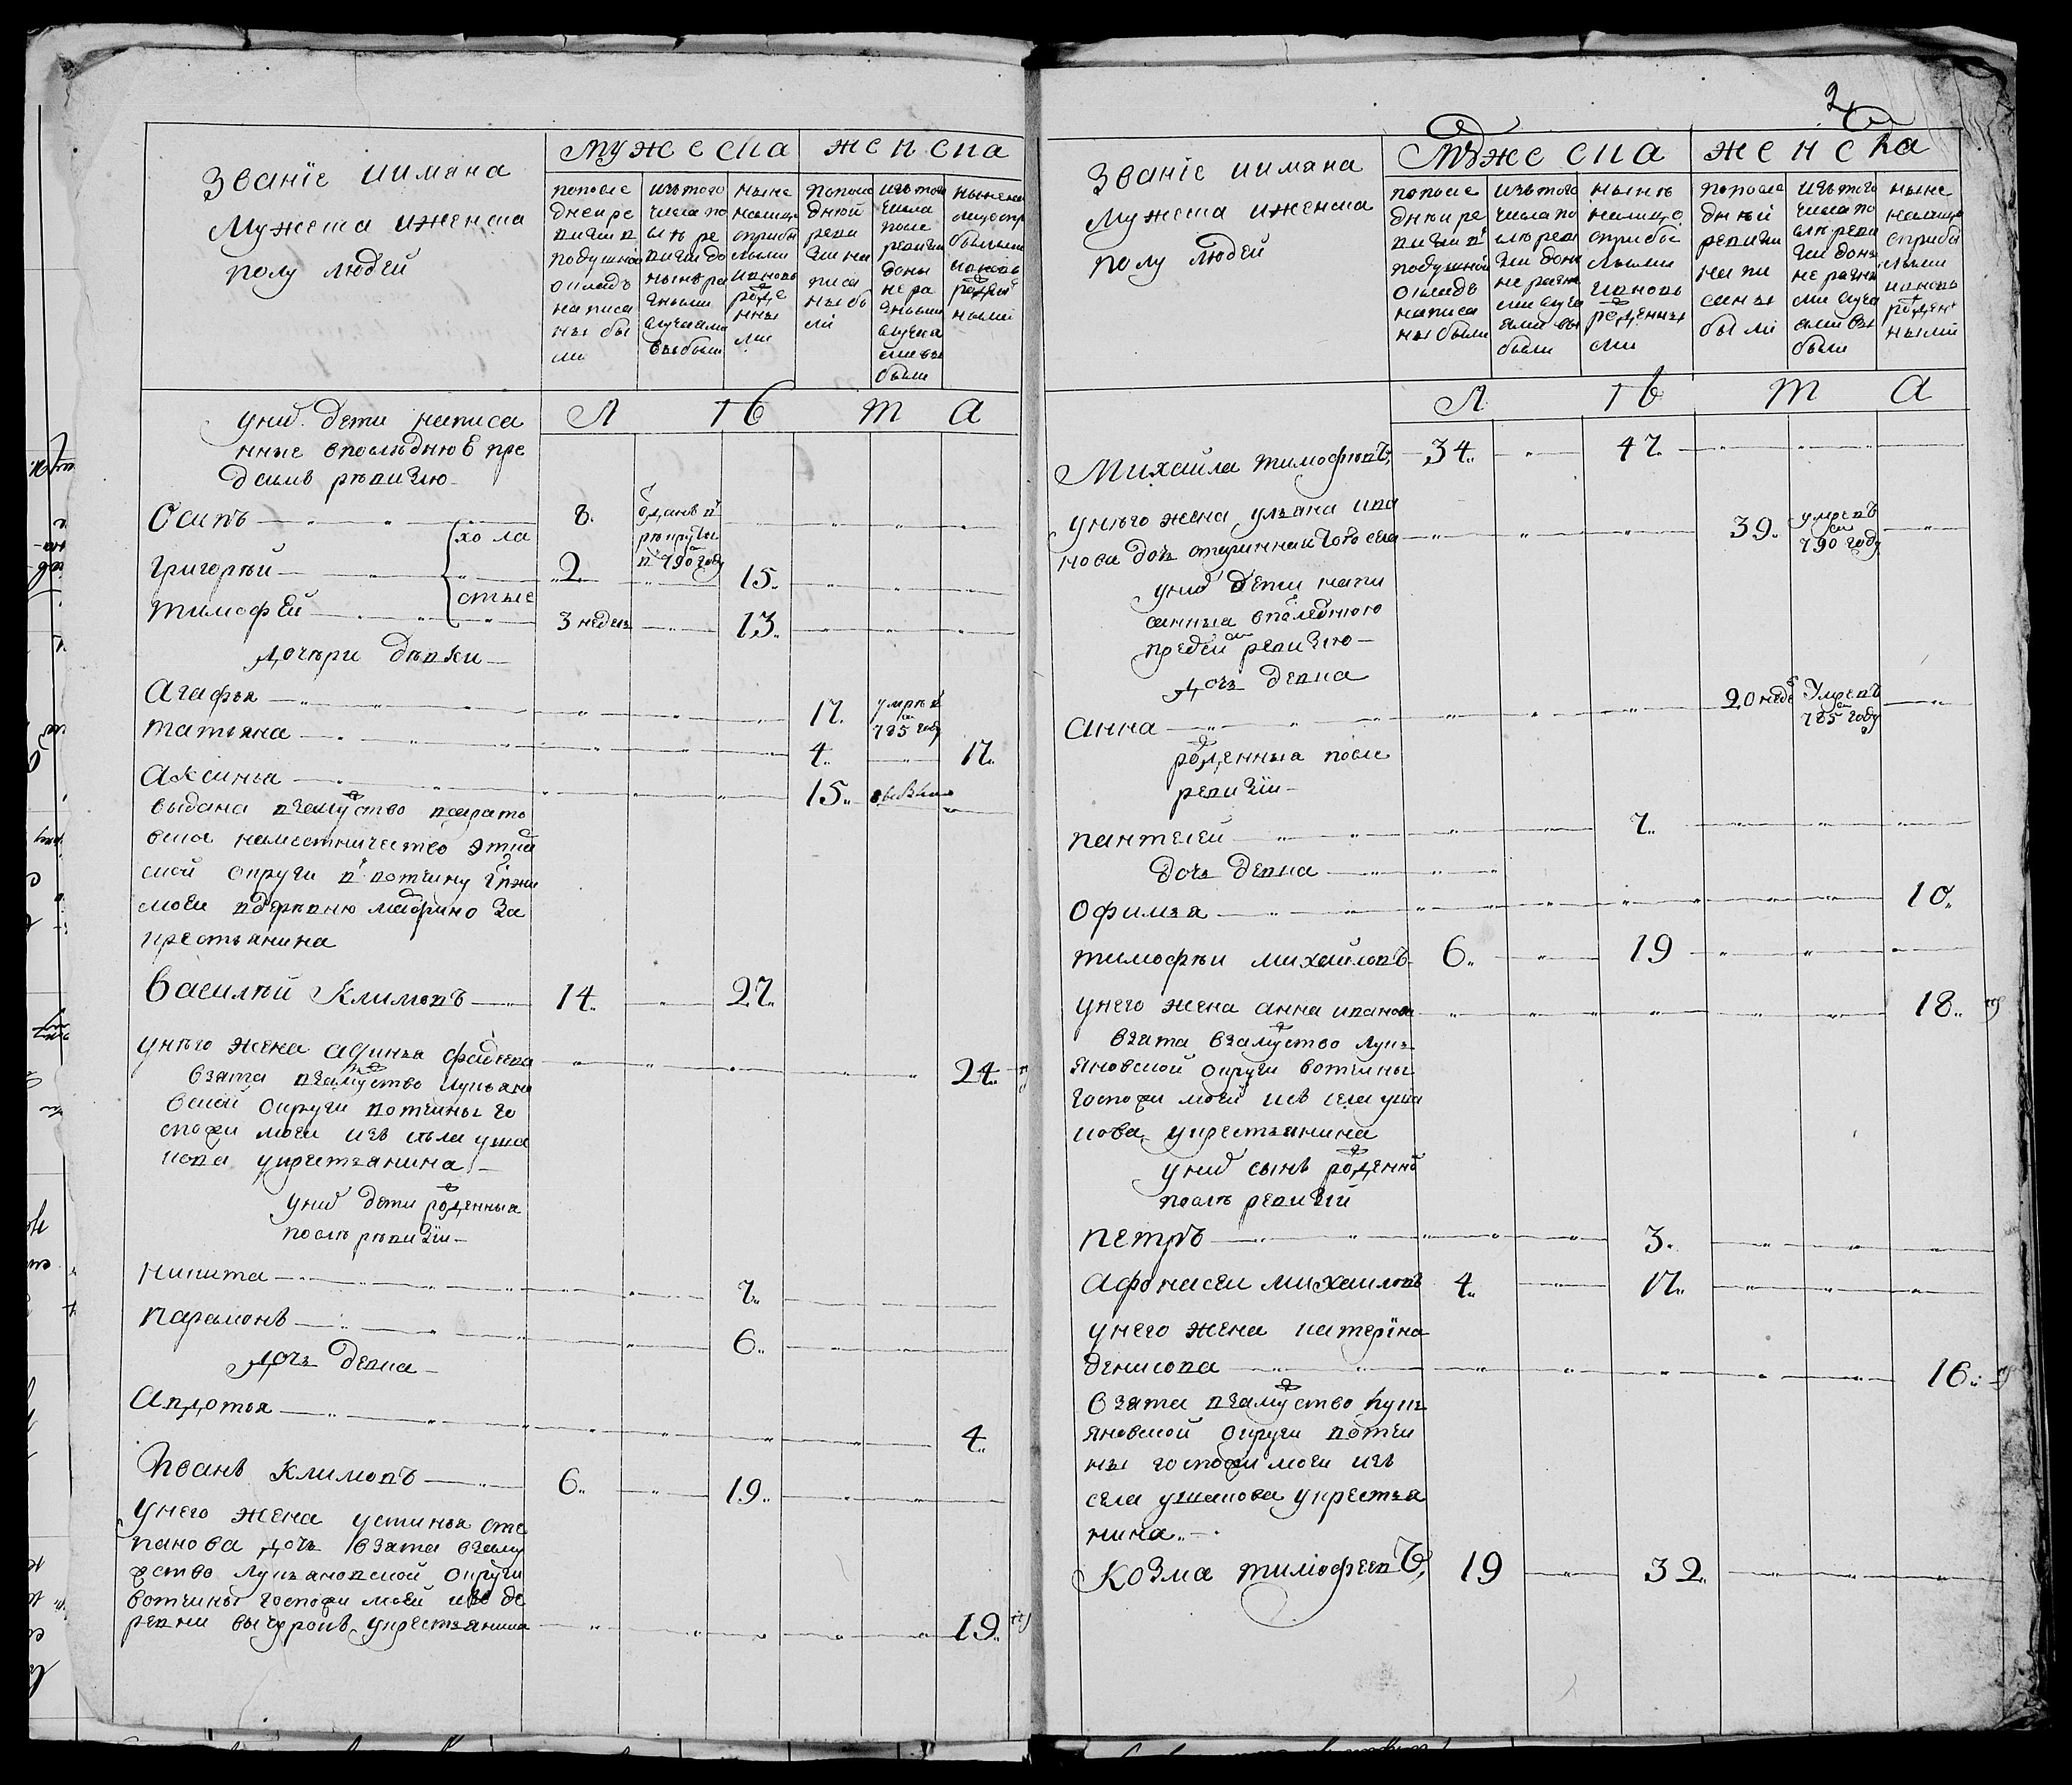 Званїе иимяна
Мужеска иженска
полу людей
Мужеска
женска
попосле
днеи ре
визии в
подушной
окладъ
написа
ны бы
ли
изътого
числа по
слѣ ре
визии до
нынѣ ра
зными
случаями
выбыли
ныне
налицо
сприбы
лыми
ивновь
рожде
нны
ми
попосле
дней
реви
зии на
писа
ны бы
ли
изътого
числа
после
ревизии
доны
не ра
зными
случа
ями вы
были
ныне на
лицо спр
былыми
ивновь
рожден
ными
Л ѣ т а
уних дети написа
нные впоследнюю пре
дсимъ ревизию
Осипъ 8. отданъ в рекруты в 790м году
холостые
Григорей 2. 15.
тимофей 3 недель 13.
дочери девки
Агафья 17. умре в 785м году
татьяна 4. 17.
Аксинья 15.
выдана взамужство всарато
вское наместничество
ской округи в вотчину гпжи
моеи вдеревню за
крестьянина
Василей Климовъ 14. 27.
унего жена фадеева 24.
взята взамужство лукьяно
вской округи вотчины го
спожи моеи изъ села уша
кова укрестьянина
уних дети рожденныя
после ревизїи
никита 7.
Парамонъ 6.
дочь девка
Авдотья 4.
Иванъ Климовъ 6. 19.
унего жена устинья сте
панова дочь взята взаму
жство лукьяновской округи
вотчины госпожи моей изъ де
ревни укрестьянина 19.
2
Званїе иимяна
Мужеска иженска
полу людей
Мужеска
женска
попосле
днеи ре
визии в
подушной
окладъ
написа
ны были
изътого
числа по
слѣ реви
зии доны
не разны
ми случа
ями вы
были
нынѣ
налицо
сприбы
лыми
ивновь
рожденны
ми
попосле
дней
ревизии
напи
саны
были
изътого
числа по
слѣ реви
зии доны
не разны
ми случа
ями вы
были
ныне
налицо
сприбы
лыми
ивновь
рожден
ными
Л ѣ т а
Михайла тимофеевъ 34. 47.
унего жена ульяна ива
нова дочь стариннаго того села 39. умре в 790м году
уних дети напи
санныя впоследнюю
предсим ревизию
дочь девка
Анна 20 недель Умре в 785м году
рожденныя после
ревизїи
пантелей 7.
дочь девка
Офимья 10.
тимофеи михайловъ 6. 19
унего жена анна иванова 18.
взята взамужство лукь
яновской округи вотчины
госпожи моей изъ села уша
кова укрестьянина
уних сынъ рожденной
послѣ ревизїй
петръ 3.
Афонасеи михаиловъ 4. 17.
унего жена катерїна
денисова 16.
взята взамужство лукь
яновской округи вотчи
ны госпожи моеи изъ
села ушакова укрестья
нина.
Козма тимофеевъ 19 32.